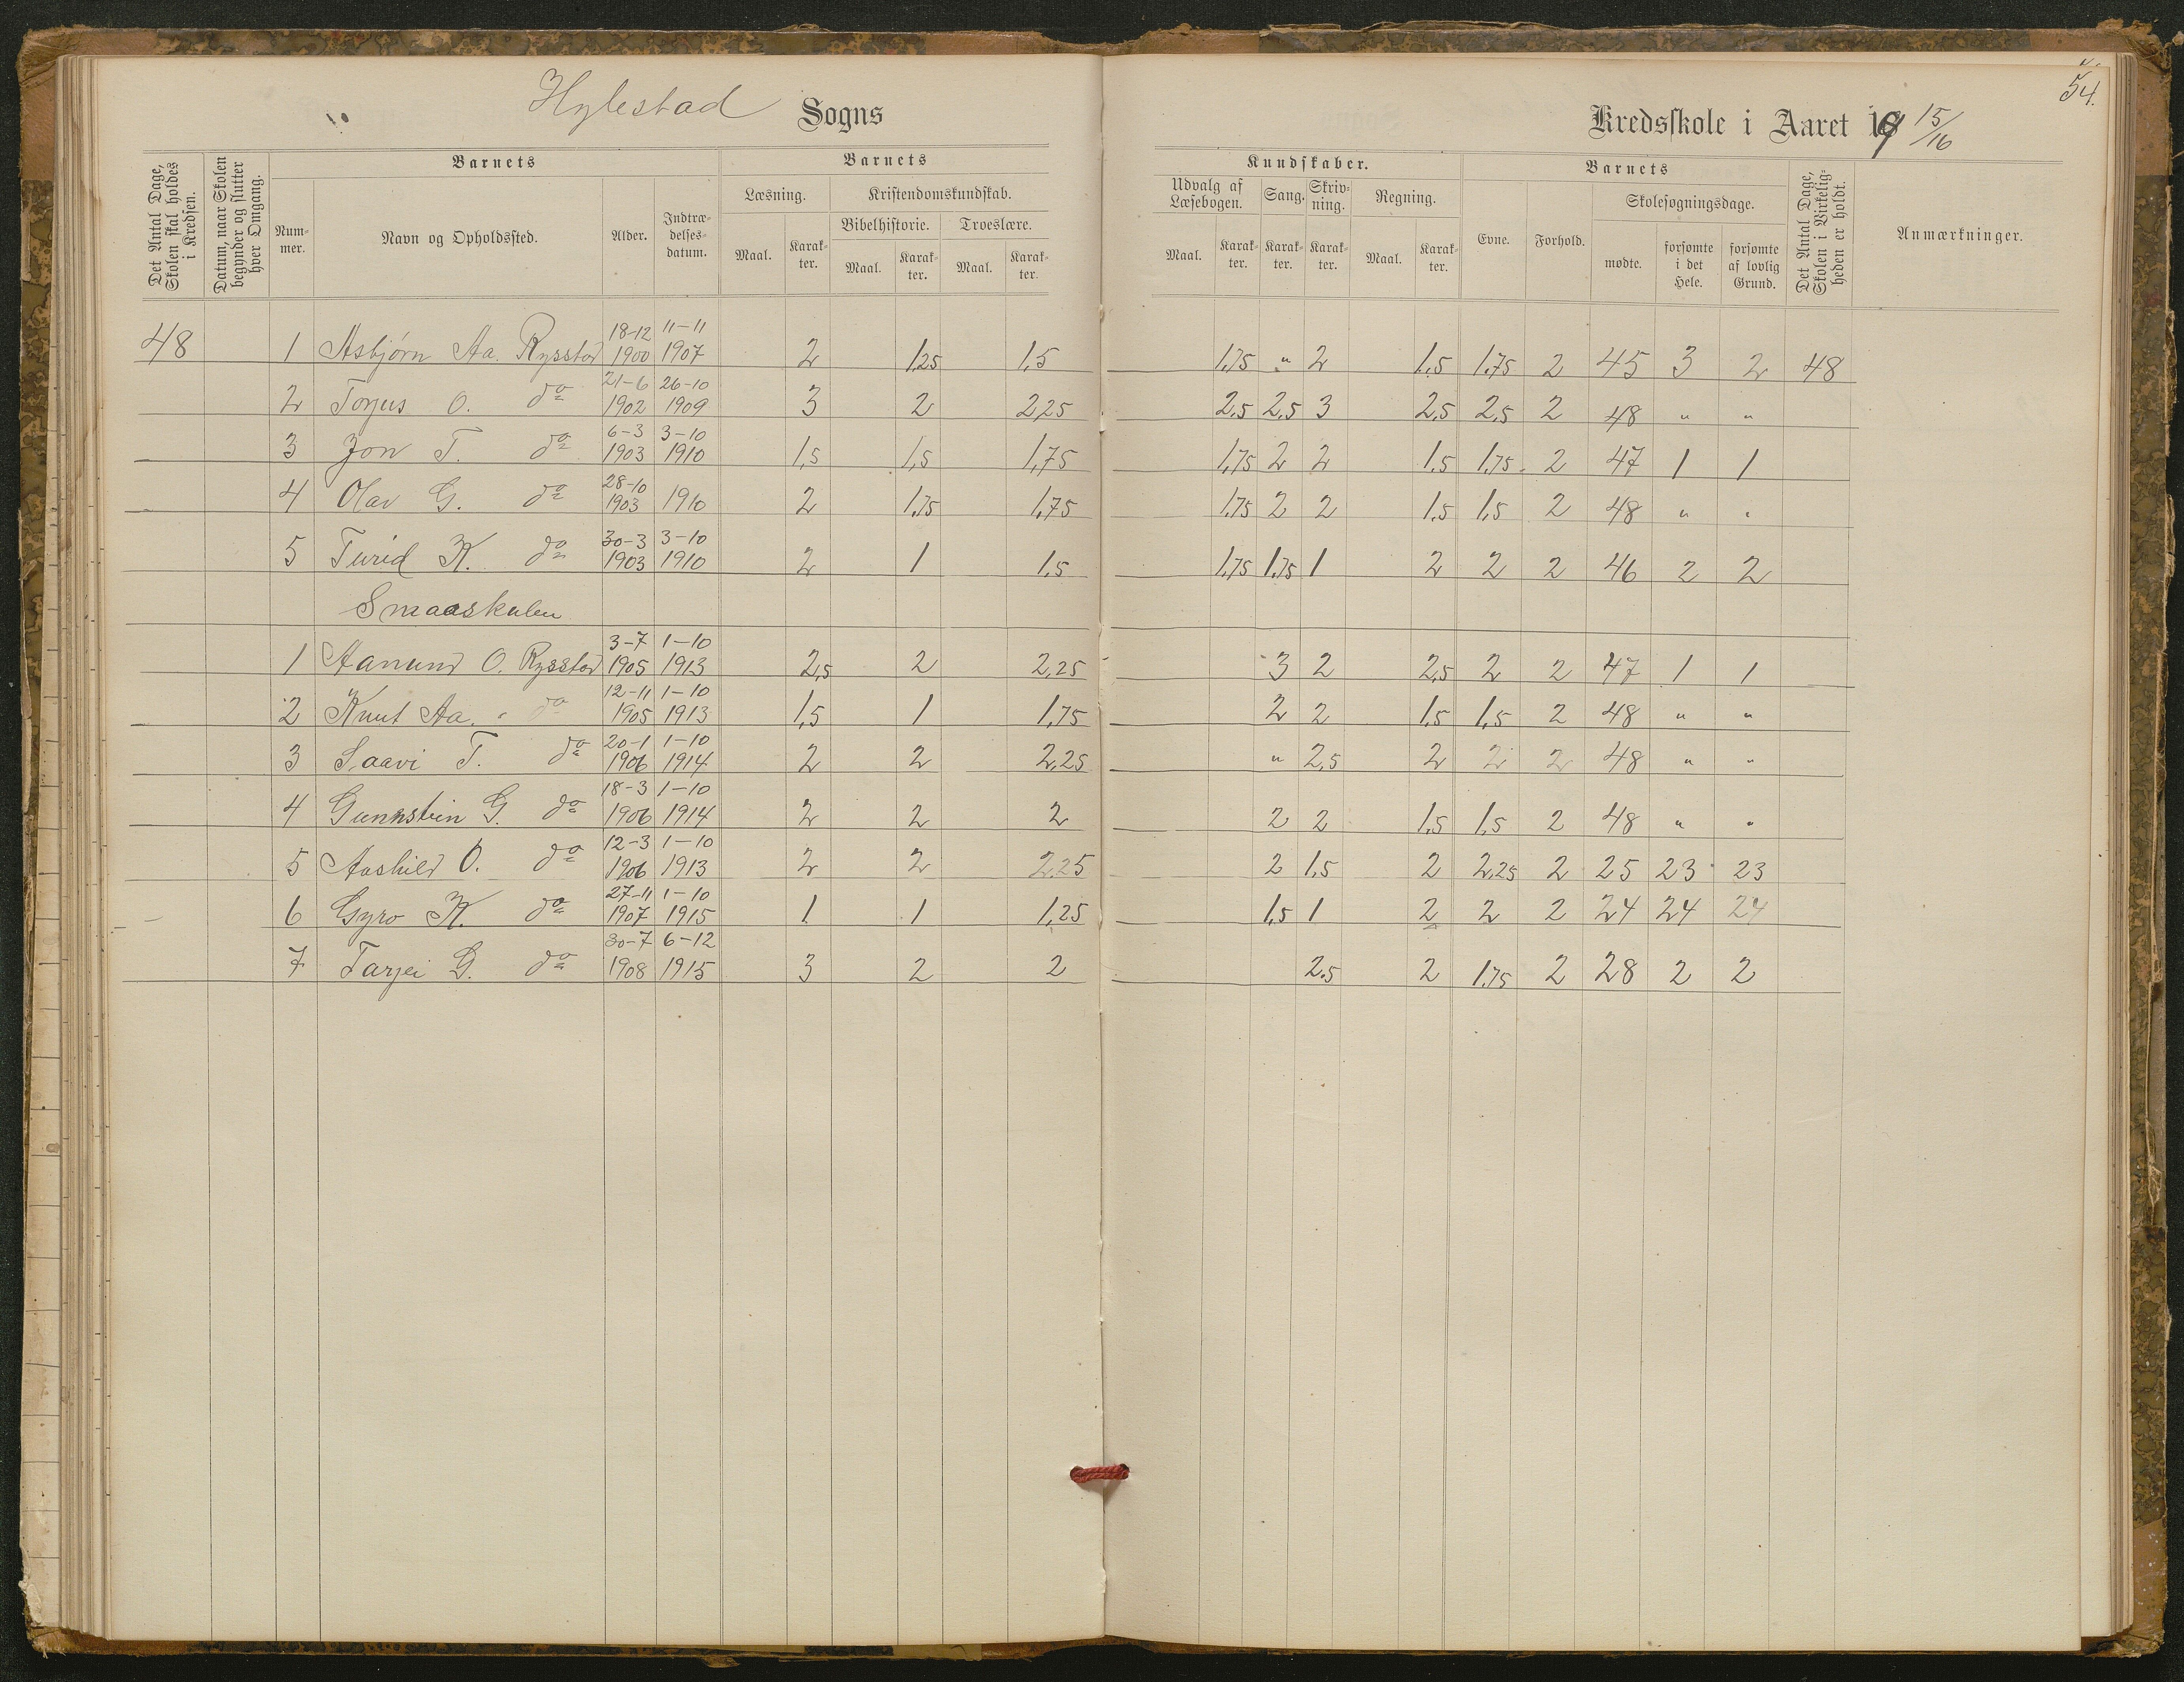 54.
Hylestad Sogns Kredsskole i Aaret 19 15/16
Det Antal Dage, Skolen skal holdes i Kredsen.
Datum, naar Skolen begynder og slutter hver Omgang.
Barnets
Nummer.
Navn og Opholdssted.
Alder.
Indtrædelsesdatum.
Barnets
Læsning.
Maal. Karakter.
Kristendomskundskab.
Bibelhistorie. Troeslære.
Maal. Karakter. Maal. Karakter.
Kundskaber.
Udvalg af Læsebogen. Sang. Skrivning. Regning.
Maal. Karakter. Karakter. Karakter. Maal. Karakter.
Barnets
Evne. Forhold.
Skolesøgningsdage.
mødte. forsømte i det Hele. forsømte af lovlig Grund.
Det Antal Dage, Skolen i Virkeligheden er holdt.
Anmærkninger.
48 1 Asbjørn Aa. Rysstad 18-12 1900 11-11 1907 2 1,25 1,5 1,75 " 2 1,5 1,75 2 45 3 2 48
2 Torjus O. do 21-6 1902 26-10 1909 3 2 2,25 2,5 2,5 3 2,5 2,5 2 48 " "
3 Jon T. do 6-3 1903 3-10 1910 1,5 1,5 1,75 1,75 2 2 1,5 1,75 2 47 1 1
4 Olav G. do 28-10 1903 1910 2 1,75 1,75 1,75 2 2 1,5 1,5 2 48 " "
5 Turid K. do 30-3 1903 3-10 1910 2 1 1,5 1,75 1,75 1 2 2 2 46 2 2
Smaaskulen
1 Aanund O. Rysstad 3-7 1905 1-10 1913 2,5 2 2,25 3 2 2,5 2 2 47 1 1
2 Knut Aa. do 12-11 1905 1-10 1913 1,5 1 1,75 2 2 1,5 1,5 2 48 " "
3 Saavi T. do 20-1 1906 1-10 1914 2 2 2,25 " 2,5 2 2 2 48 " "
4 Gunnstein G. do 18-3 1906 1-10 1914 2 2 2 2 2 1,5 1,5 2 48 " "
5 Aashild O. do 12-3 1906 1-10 1913 2 2 2,25 2 1,5 2 2,25 2 25 23 23
6 Gyro K. do 27-11 1907 1-10 1915 1 1 1,25 1,5 1 2 2 2 24 24 24
7 Tarjei G. do 30-7 1908 6-12 1915 3 2 2 2,5 2 1,75 2 28 2 2